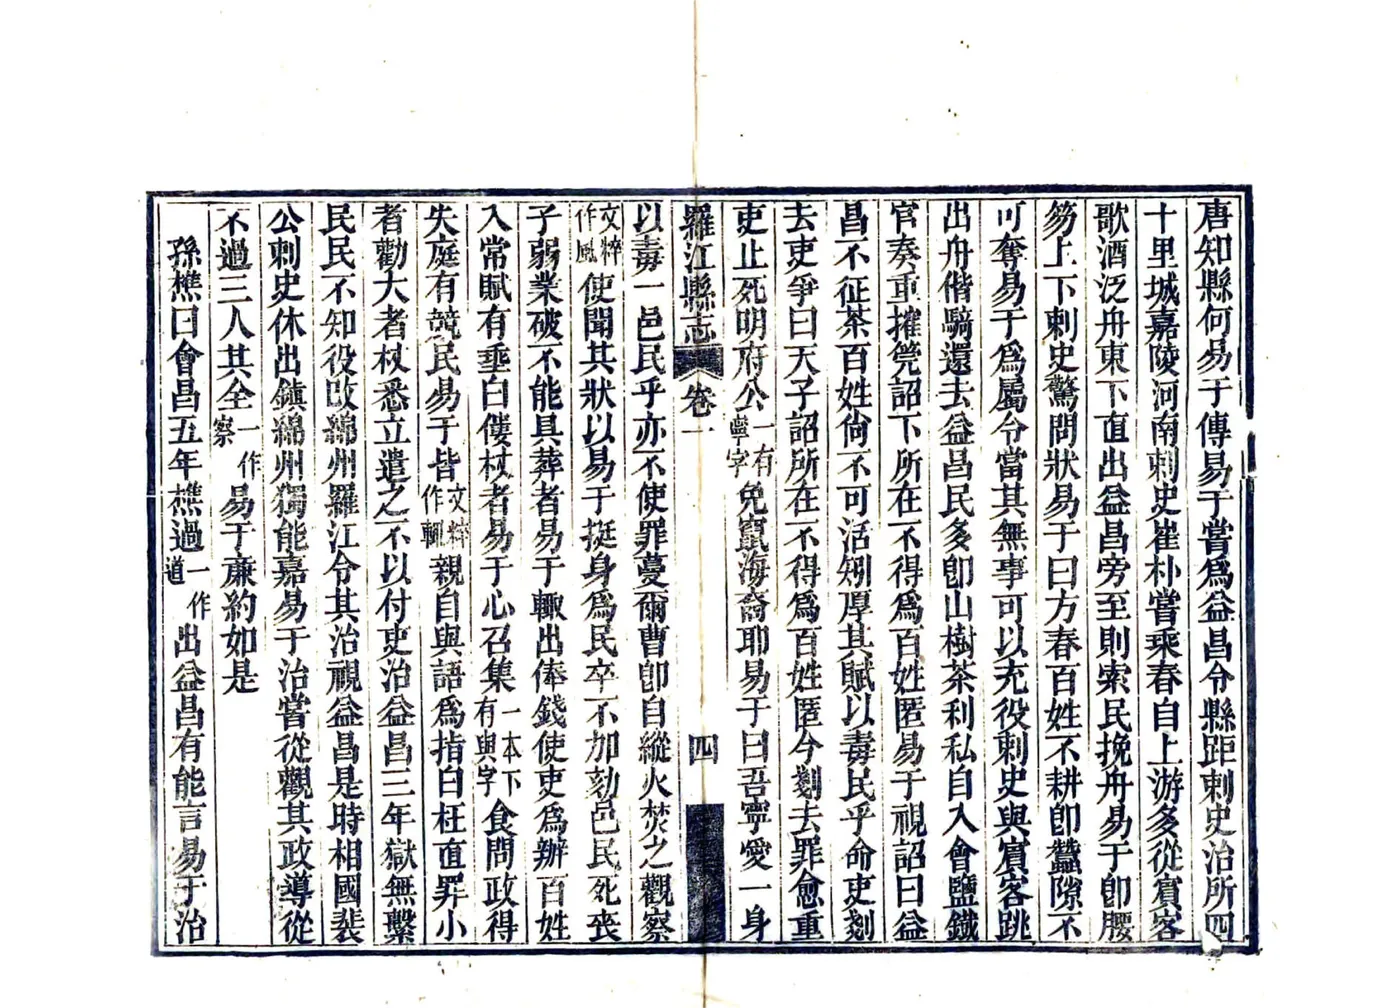 唐知縣何易于傳易于嘗爲益昌令縣距刺史治所四
十里城嘉陵河南刺史崔朴嘗乘春自上游多從賓客
歌酒泛舟東下直出益昌旁至則索民挽舟易于卽腰
笏上下刺史驚問狀易于曰方春百姓不耕卽蠶隙不
可奪易于爲屬令當其無事可以充役刺史與賓客跳
出舟偕騎還去益昌民多卽山樹茶利私自入會鹽鐵
官奏重搉筦詔下所在不得爲百姓匿易于視詔曰益
昌不征茶百姓尙不可活矧厚其賦以毒民乎命吏剗
去吏爭曰天子詔所在不得爲百姓匿今剗去罪愈重
吏止死明府公一有寧字免竄海裔耶易于曰吾寧愛一身
羅江縣志 卷一 四
以毒一邑民乎亦不使罪蔓爾曹卽自縱火焚之觀察
文粹作風使聞其狀以易于挺身爲民卒不加劾邑民死喪
子弱業破不能具葬者易于輒出俸錢使吏爲辦百姓
入常賦有垂白僂杖者易于心召集一本下有與字食問政得
失庭有競民易于皆文粹作輒親自與語爲指白枉直罪小
者勸大者杖悉立遣之不以付吏治益昌三年獄無繫
民民不知役改綿州羅江令其治視益昌是時相國裴
公刺史休出鎮綿州獨能嘉易于治嘗從觀其政導從
不過三人其全一作察易于廉約如是
孫樵曰會昌五年樵過一作道出益昌有能言易于治